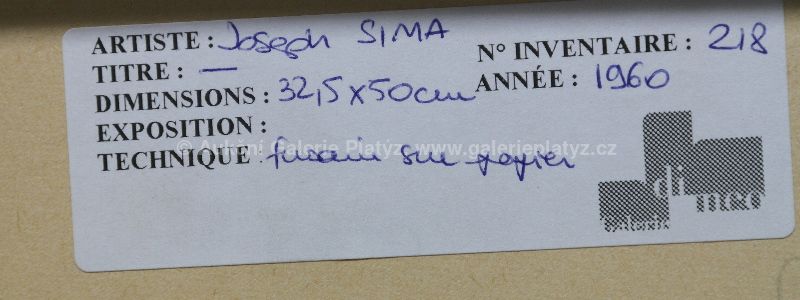 ARTISTE : Joseph SIMA
N° INVENTAIRE : 218
TITRE : —
ANNÉE : 1960
DIMENSIONS : 32,5 x 50 cm
EXPOSITION :
TECHNIQUE : fusain sur papier
© Aukční Galerie Platýz www.galerieplatyz.cz
galerie
di meo